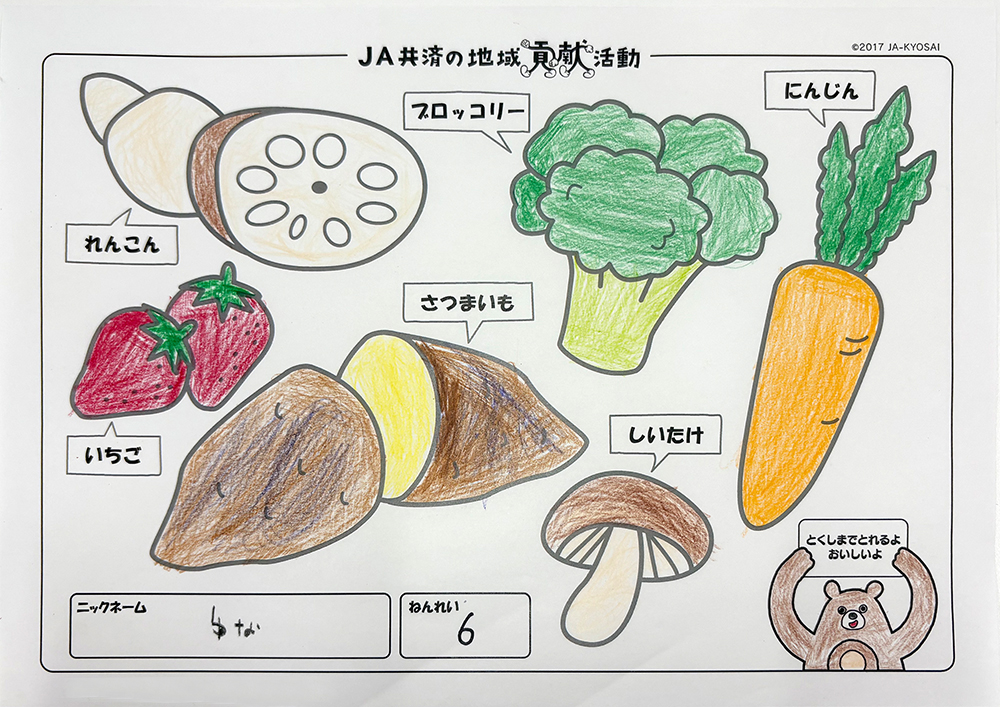 ©2017 JA-KYOSAI
JA共済の地域貢献活動
ブロッコリー
にんじん
れんこん
さつまいも
いちご
しいたけ
とくしまでとれるよ
おいしいよ
ニックネーム
ねんれい
6